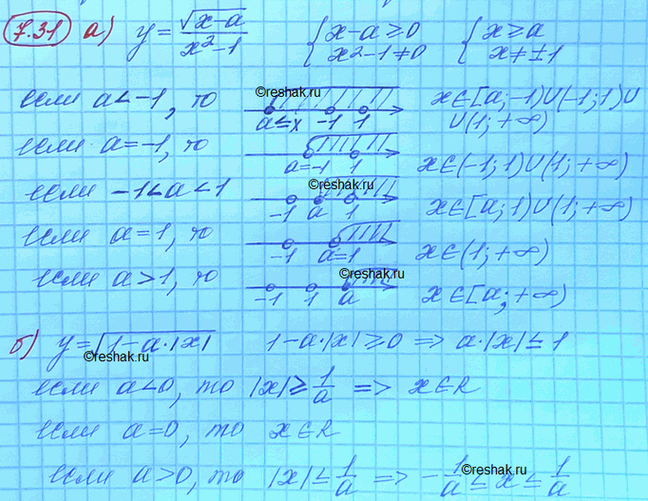 7.31 а) y = √(x-a) / (x²-1) { x-a ≥ 0 { x ≥ a
x²-1 ≠ 0 x ≠ ±1
©reshak.ru
если a < -1, то a ≤ x -1 1 x ∈ [a; -1) ∪ (-1; 1) ∪
∪ (1; +∞)
если a = -1, то a = -1 1 x ∈ (-1; 1) ∪ (1; +∞)
©reshak.ru
если -1 < a < 1 -1 a 1 x ∈ [a; 1) ∪ (1; +∞)
если a = 1, то -1 a = 1 x ∈ (1; +∞)
©reshak.ru
если a > 1, то -1 1 a x ∈ [a; +∞)
б) y = √(1-a·|x|) 1-a·|x| ≥ 0 => a·|x| ≤ 1
©reshak.ru
если a < 0, то |x| ≥ 1/a => x ∈ R
если a = 0, то x ∈ R
©reshak.ru
если a > 0, то |x| ≤ 1/a => -1/a ≤ x ≤ 1/a